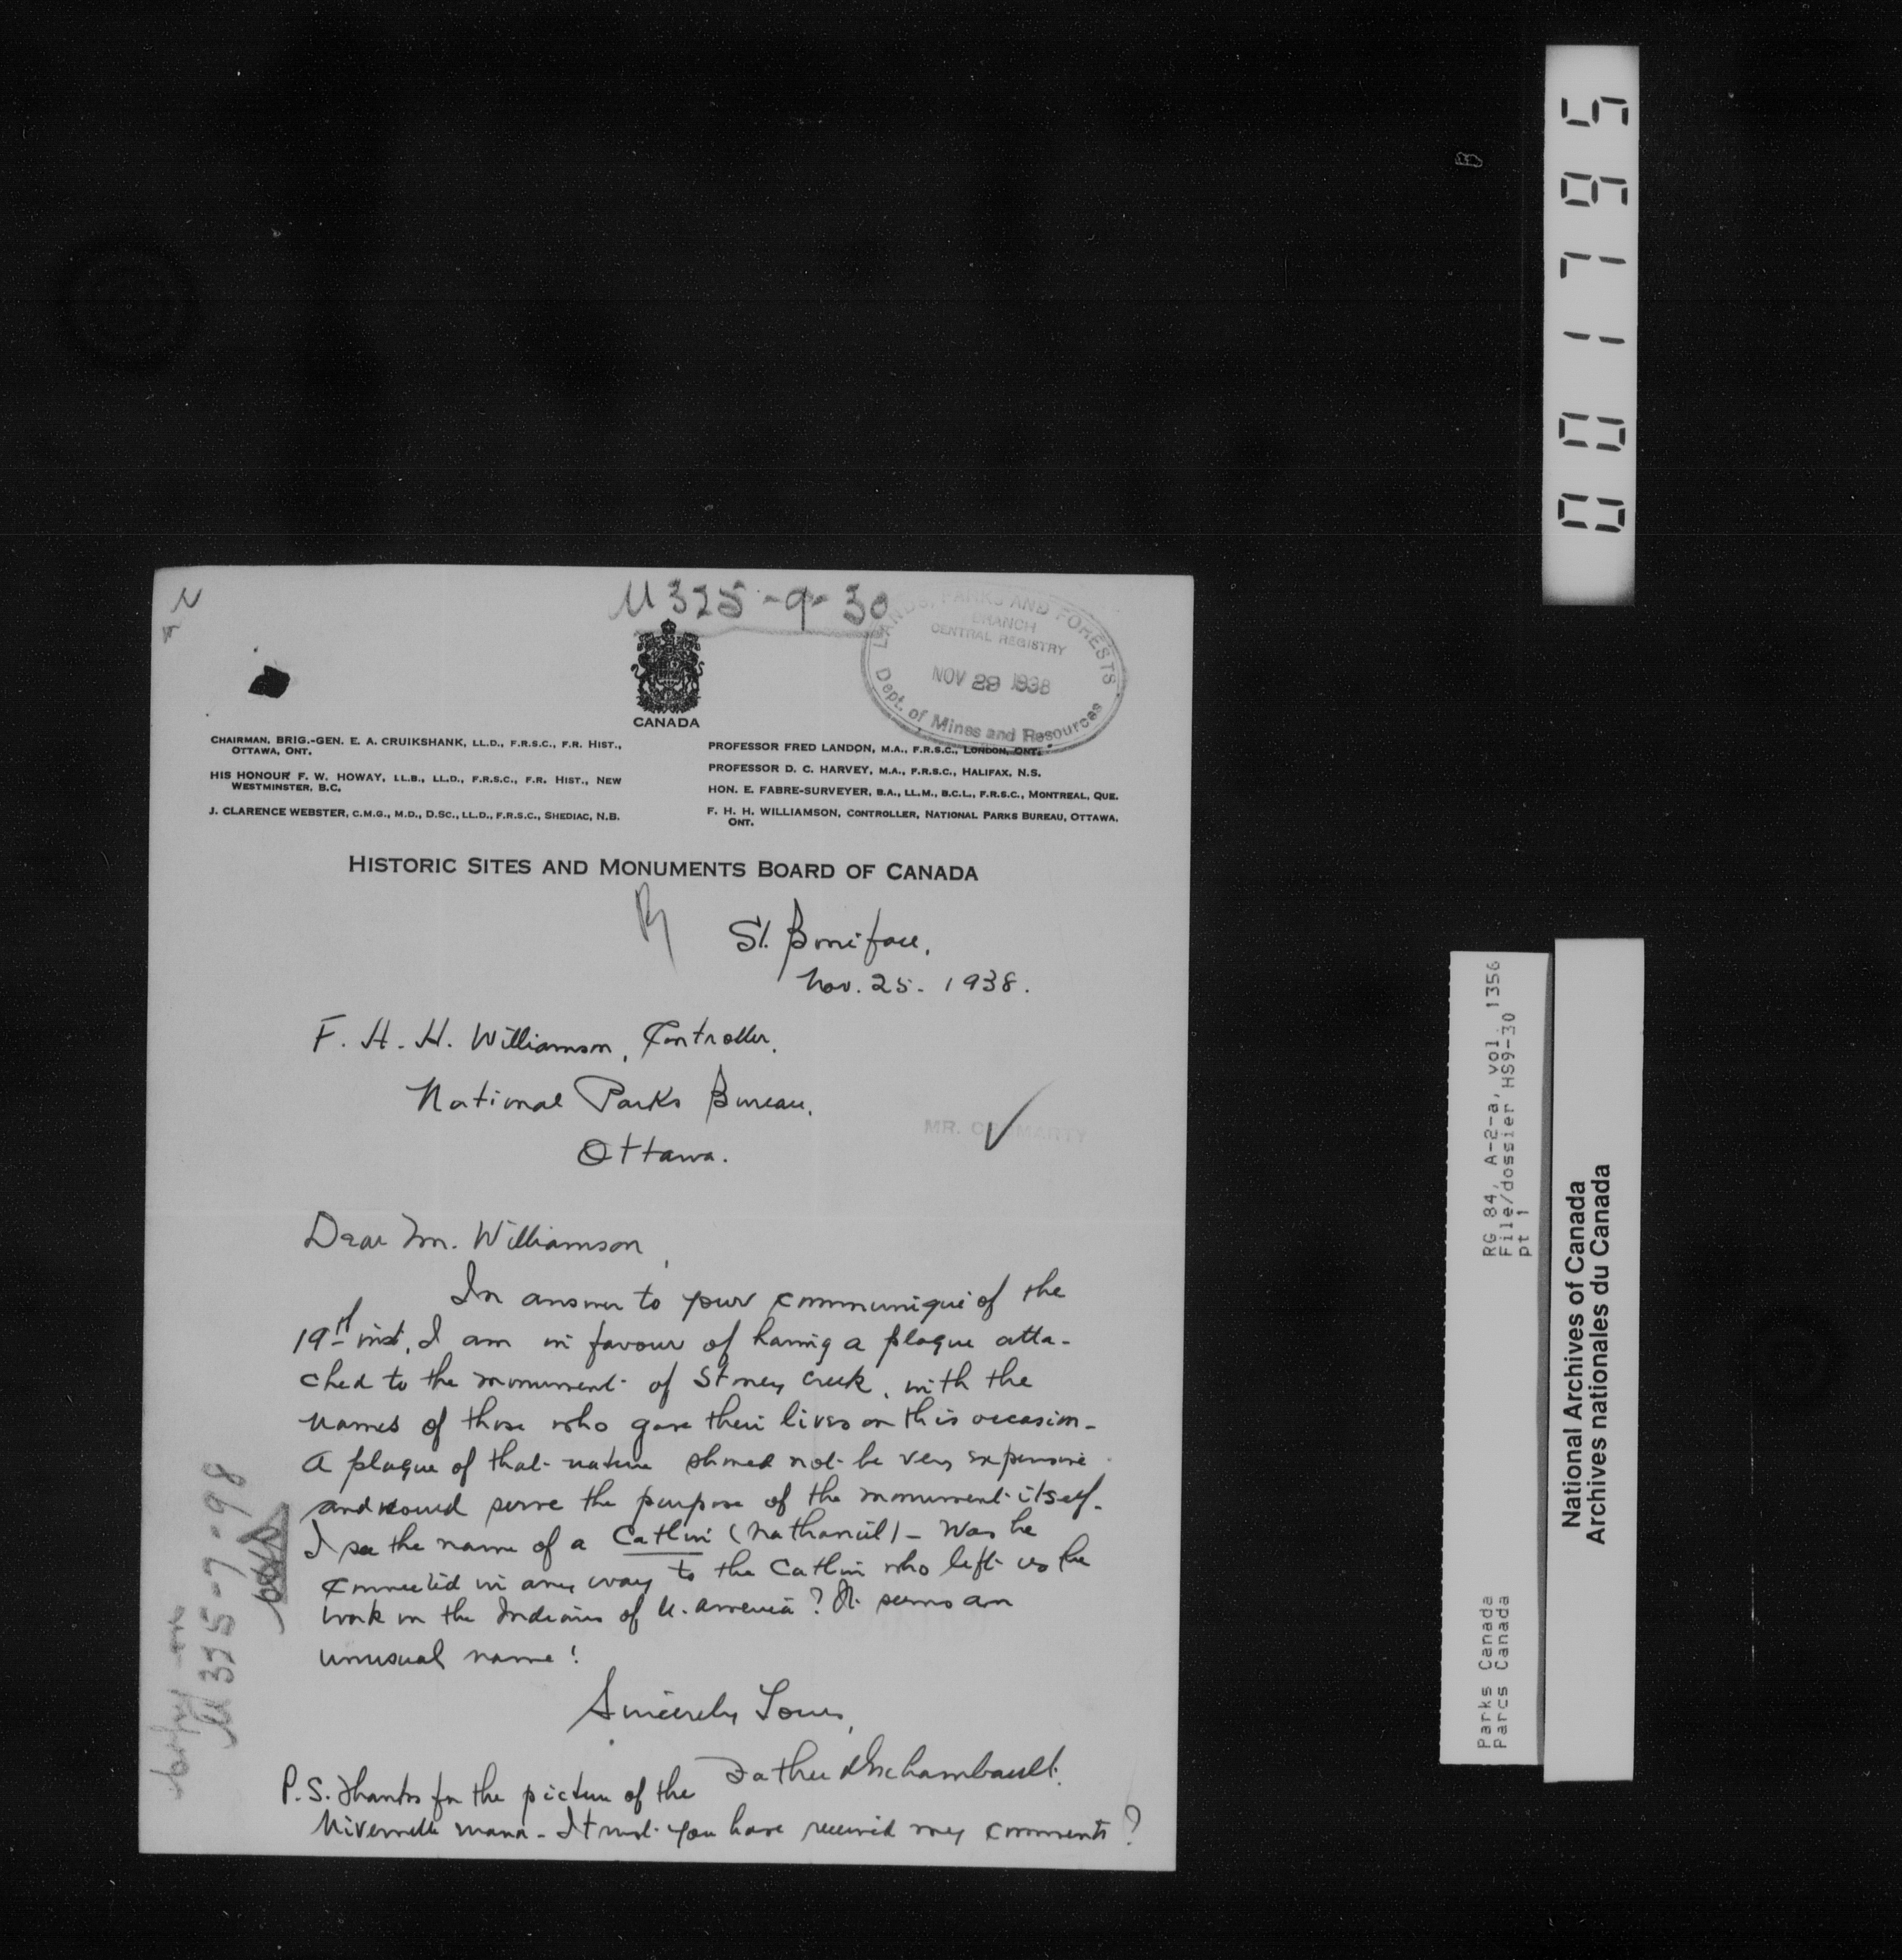 U325-9-30
LANDS, PARKS AND FORESTS
BRANCH
CENTRAL REGISTRY
NOV 29 1938
Dept. of Mines and Resources
CANADA
CHAIRMAN, BRIG.-GEN. E. A. CRUIKSHANK, LL.D., F.R.S.C., F.R. HIST.,
OTTAWA, ONT.
HIS HONOUR F. W. HOWAY, LL.B., LL.D., F.R.S.C., F.R. HIST., NEW
WESTMINSTER, B.C.
J. CLARENCE WEBSTER, C.M.G., M.D., D.SC., LL.D., F.R.S.C., SHEDIAC, N.B.
PROFESSOR FRED LANDON, M.A., F.R.S.C., LONDON, ONT.
PROFESSOR D. C. HARVEY, M.A., F.R.S.C., HALIFAX, N.S.
HON. E. FABRE-SURVEYER, B.A., LL.M., B.C.L., F.R.S.C., MONTREAL, QUE.
F. H. H. WILLIAMSON, CONTROLLER, NATIONAL PARKS BUREAU, OTTAWA,
ONT.
HISTORIC SITES AND MONUMENTS BOARD OF CANADA
St. Boniface,
Nov. 25. 1938.
F. H. H. Williamson, Controller,
National Parks Bureau,
Ottawa.
MR. CROMARTY
Dear Mr. Williamson,
In answer to your communiqué of the
19th inst, I am in favour of having a plaque atta-
ched to the monument of Stoney Creek, with the
names of those who gave their lives on this occasion-
A plaque of that nature should not be very expensive
and would serve the purpose of the monument itself.
I see the name of a Catlin (Nathaniel) - Was he
connected in any way to the Catlin who left us the
work on the Indians of N. America? It seems an
unusual name!
Sincerely Yours,
Father d'Eschambault.
P.S. Thanks for the picture of the
Niverville - I trust you have received my comments?
copy on
U325-7-98
0001795
RG 84, A-2-a, vol. 1356
File/dossier HS9-30
pt 1
Parks Canada
Parcs Canada
National Archives of Canada
Archives nationales du Canada